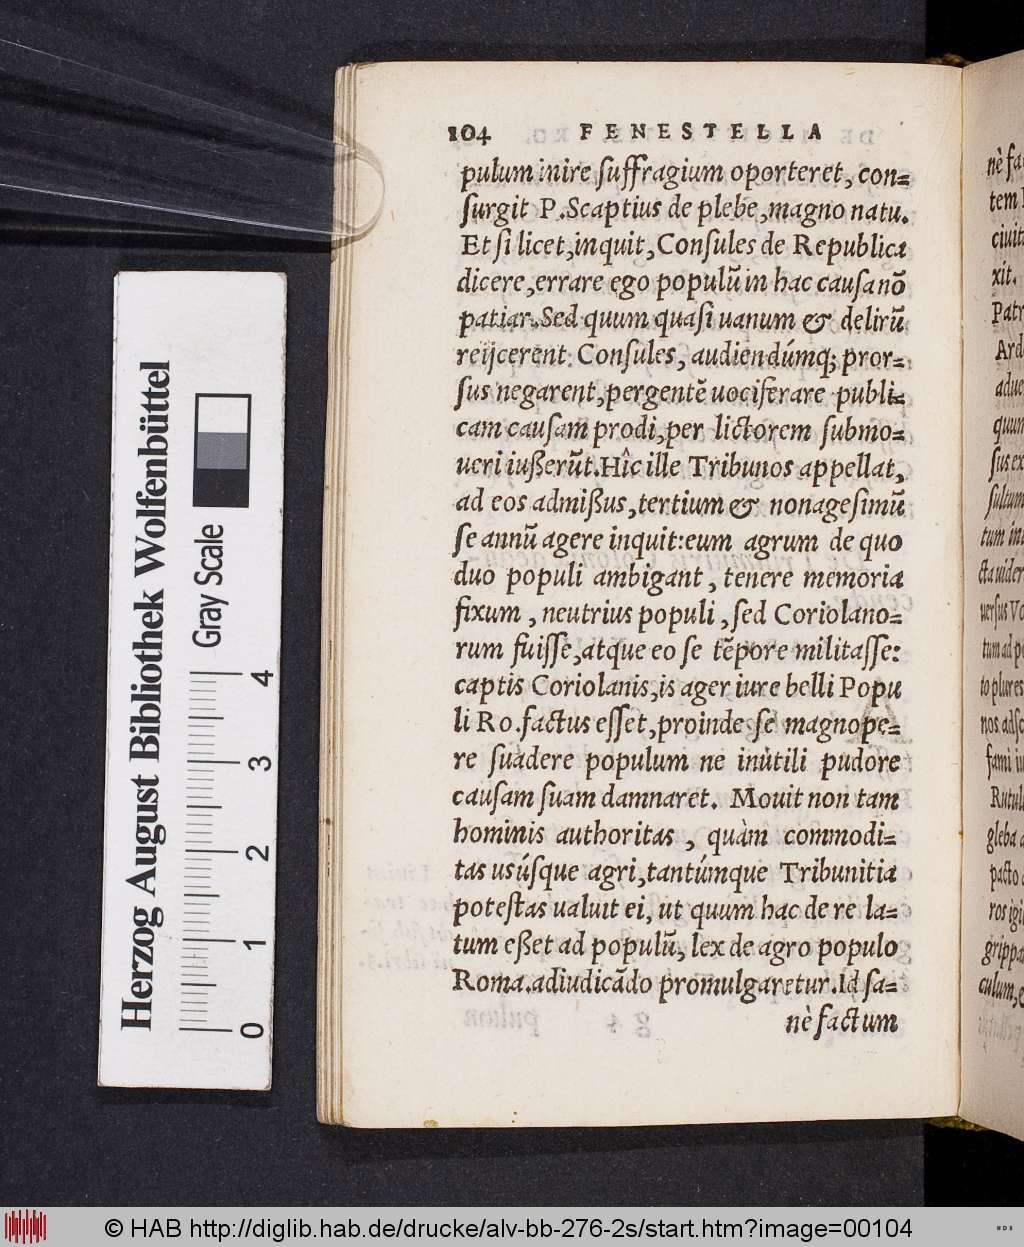 104 FENESTELLA
pulum inire ſuffragium oporteret, con=
ſurgit P.Scaptius de plebe,magno natu.
Et ſi licet,inquit,Conſules de Republica
dicere,errare ego populū in hac cauſa nō
patiar.Sed quum quaſi uanum & delirū
reijcerent Conſules, audiendúmq; pror=
ſus negarent,pergentē uociferare publi=
cam cauſam prodi,per lictorem ſubmo=
ueri iußerūt.Hîc ille Tribunos appellat,
ad eos admißus,tertium & nonageſimū
ſe annū agere inquit:eum agrum de quo
duo populi ambigant, tenere memoria
fixum, neutrius populi, ſed Coriolano=
rum fuiſſe,atque eo ſe tēpore militaſſe:
captis Coriolanis,is ager iure belli Popu
li Ro.factus eſſet,proinde ſe magnope=
re ſuadere populum ne inutili pudore
cauſam ſuam damnaret. Mouit non tam
hominis authoritas, quàm commodi=
tas usúsque agri,tantúmque Tribunitia
poteſtas ualuit ei, ut quum hac de re la=
tum eßet ad populū, lex de agro populo
Roma.adiudicādo promulgaretur.Id ſa=
nè factum
nè fa
tem
ciuit
xit.
Patr
Ard
adue
quum
ſus ex
ſultum
tum in
cta uider
uerſus Vo
tum ad p
to plures
nos adſc
fami iu
Rutul
gleba
pacto
ros igi
grippa
culum,
Herzog August Bibliothek Wolfenbüttel
Gray Scale
0 1 2 3 4
© HAB http://diglib.hab.de/drucke/alv-bb-276-2s/start.htm?image=00104
WDB